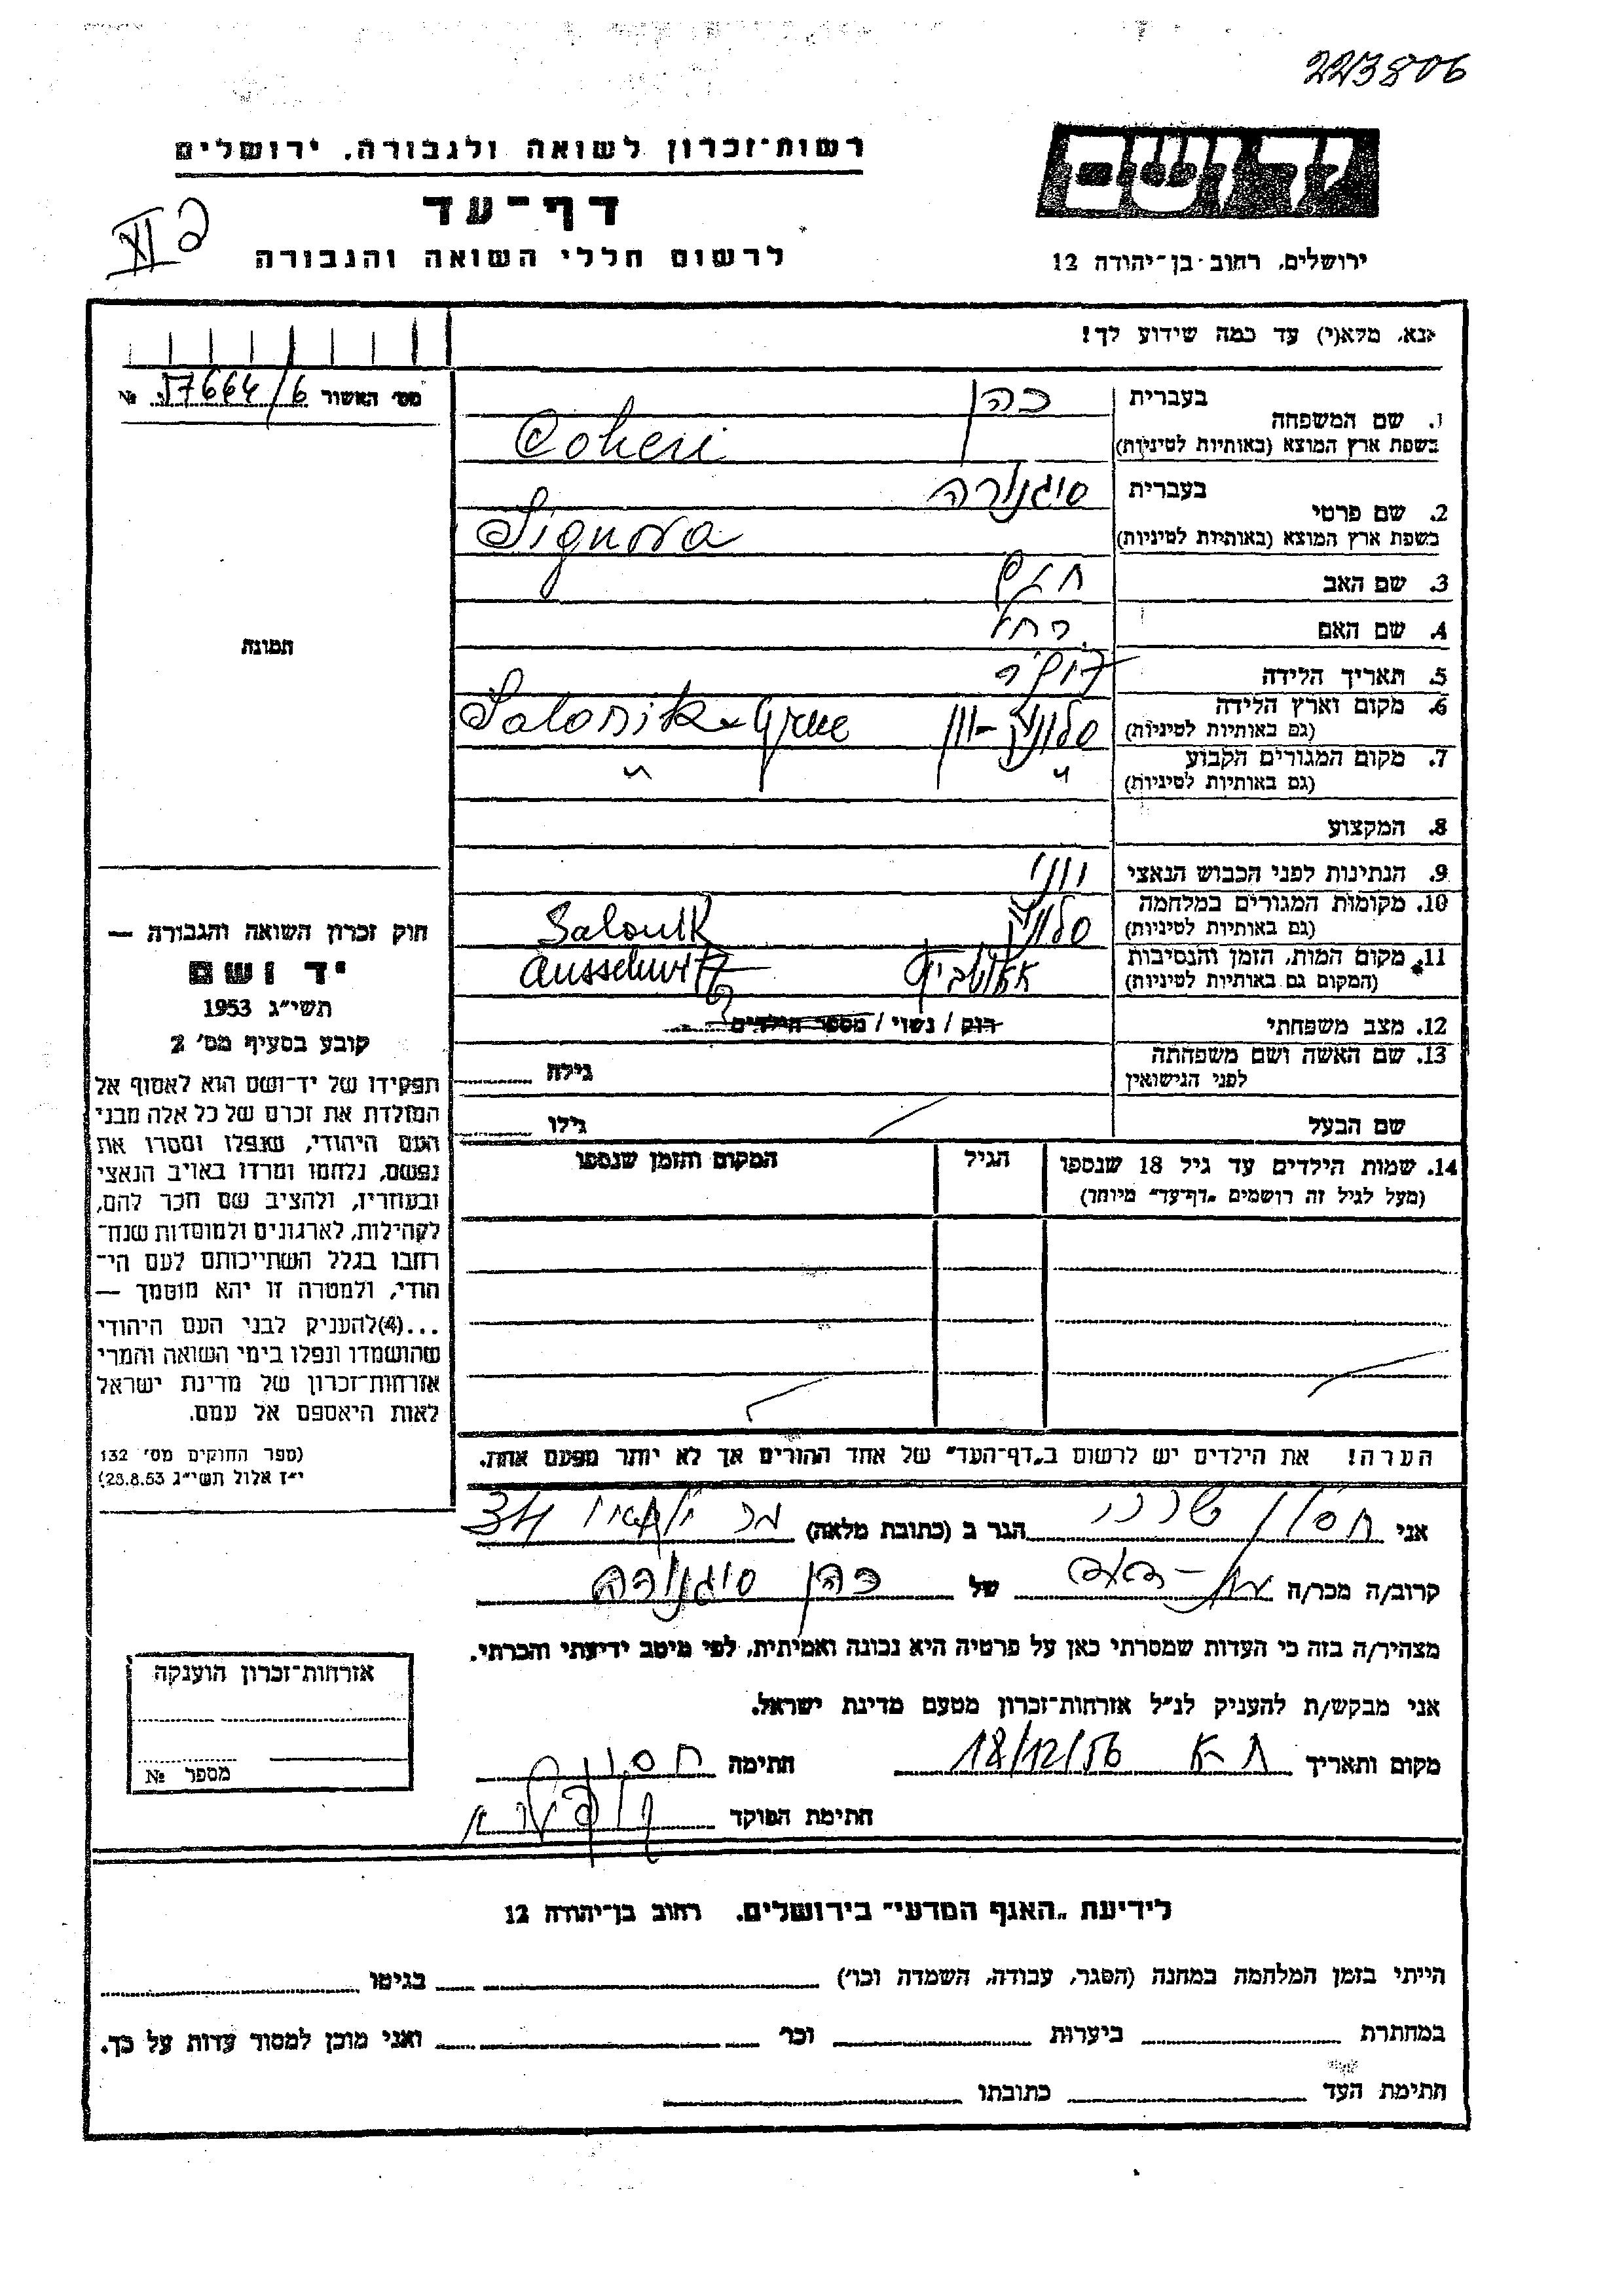 223806
רשות־זכרון לשואה ולגבורה, ירושלים
דף־עד
לרשום חללי השואה והגבורה
יד ושם
ירושלים, רחוב בן־יהודה 12
נא, מלא(י) עד כמה שידוע לך!
מס׳ האשור 57664/6 №
1. שם המשפחה
בעברית כהן
בשפת ארץ המוצא (באותיות לטיניות) Cohen
2. שם פרטי
בעברית סיגנורה
בשפת ארץ המוצא (באותיות לטיניות) Signora
3. שם האב חיים
4. שם האם רחל
5. תאריך הלידה
6. מקום וארץ הלידה סלוניק - יון Salonik - Grece
(גם באותיות לטיניות)
7. מקום המגורים הקבוע " "
(גם באותיות לטיניות)
8. המקצוע
9. הנתינות לפני הכבוש הנאצי יוני
10. מקומות המגורים במלחמה סלוניק Salonik
(גם באותיות לטיניות)
11. מקום המות, הזמן והנסיבות אאושביץ Ausschwitz
(המקום גם באותיות לטיניות)
12. מצב משפחתי רוק / נשוי / מספר הילדים
13. שם האשה ושם משפחתה
לפני הנישואין
גילה
שם הבעל גילו
14. שמות הילדים עד גיל 18 שנספו הגיל המקום והזמן שנספו
(מעל לגיל זה רושמים „דף־עד״ מיוחד)
הערה! את הילדים יש לרשום ב„דף־העד״ של אחד ההורים אך לא יותר מפעם אחת.
תמונה
חוק זכרון השואה והגבורה —
יד ושם
תשי״ג 1953
קובע בסעיף מס׳ 2
תפקידו של יד־ושם הוא לאסוף אל
המולדת את זכרם של כל אלה מבני
העם היהודי, שנפלו ומסרו את
נפשם, נלחמו ומרדו באויב הנאצי
ובעוזריו, ולהציב שם וזכר להם,
לקהילות, לארגונים ולמוסדות שנח־
רבו בגלל השתייכותם לעם הי־
הודי, ולמטרה זו יהא מוסמך —
...(4)להעניק לבני העם היהודי
שהושמדו ונפלו בימי השואה והמרי
אזרחות־זכרון של מדינת ישראל
לאות היאספם אל עמם.
(ספר החוקים מס׳ 132
י״ז אלול תשי״ג 28.8.53)
אני חסון הגר ב (כתובת מלאה) 34
קרוב/ה מכר/ה של כהן סיגנורה
מצהיר/ה בזה כי העדות שמסרתי כאן על פרטיה היא נכונה ואמיתית, לפי מיטב ידיעתי והכרתי.
אני מבקש/ת להעניק לנ״ל אזרחות־זכרון מטעם מדינת ישראל.
מקום ותאריך ת־א 18/12/56 חתימה חסון
חתימת הפוקד
אזרחות־זכרון הוענקה
מספר №
לידיעת „האגף המדעי״ בירושלים, רחוב בן־יהודה 12
הייתי בזמן המלחמה במחנה (הסגר, עבודה, השמדה וכו׳) בגיטו
במחתרת ביערות וכו׳ ואני מוכן למסור עדות על כך.
חתימת העד כתובתו